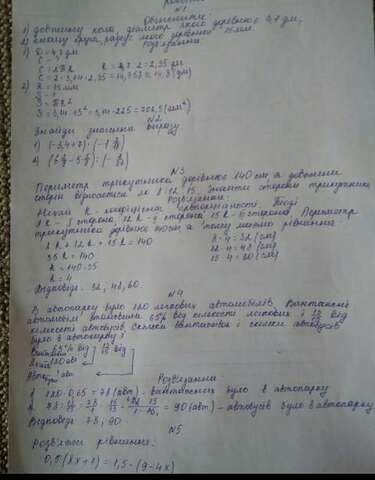 №1
Обчислити
1) довжину кола, діаметр якого дорівнює 4,7 дм,
2) площу круга, радіус якого дорівнює 15 мм
Розв'язання
1) D = 4,7 дм
C - ?
C = 2πR R = 4,7 : 2 = 2,35 дм
C = 2 · 3,14 · 2,35 = 14,758 ≈ 14,8 (дм)
2) R = 15 мм
S - ?
S = πR²
S = 3,14 · 15² = 3,14 · 225 = 706,5 (мм²)
№2
Знайди значення виразу
№3
Периметр трикутника дорівнює 140 см, а довжини
сторін відносяться як 8:12:15. Знайти сторони трикутника
Розв'язання:
Нехай k - коефіцієнт пропорційності. Тоді
8k - І сторона 12k - ІІ сторона 15k - ІІІ сторона. Периметр
трикутника дорівнює 140 см, а тому маємо рівняння
8k + 12k + 15k = 140 8·4 = 32 (см)
35k = 140 12·4 = 48 (см)
k = 140:35 15·4 = 60 (см)
k = 4
Відповідь: 32, 48, 60.
№4
В автопарку було 120 легкових автомобілів. Вантажні
автомобілі становили 65% від кількості легкових і 13/15 від
кількості автобусів. Скільки вантажівок і скільки автобусів
було в автопарку?
65% від
120 авт
Розв'язання
1. 120 · 0,65 = 78 (авт) - вантажівок було в автопарку
= 90 (авт) - автобусів було в автопарку
Відповідь: 78, 90
№5
Розв'яжи рівняння:
0,5 · (8x + 1) = 1,5 · (9 - 4x)